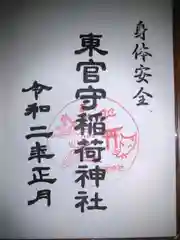 身体安全
東官守稲荷神社
令和二年正月